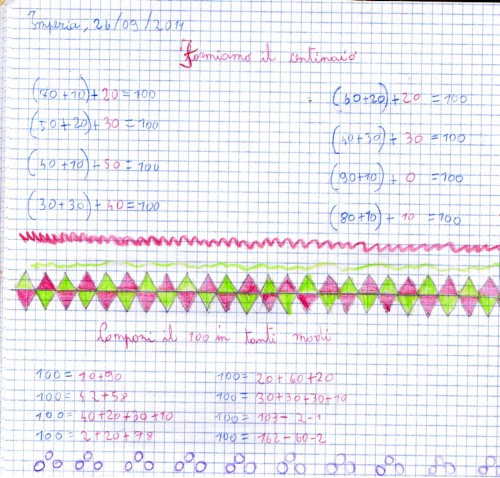 Imperia, 26/09/2011
Formiamo il centinaio
(70+10)+20=100 (60+20)+20=100
(50+20)+30=100 (40+30)+30=100
(40+10)+50=100 (90+10)+0=100
(30+30)+40=100 (80+10)+10=100
Componi il 100 in tanti modi
100=10+90 100=20+60+20
100=42+58 100=30+30+30+10
100=40+20+30+10 100=103-2-1
100=2+20+78 100=162-60-2